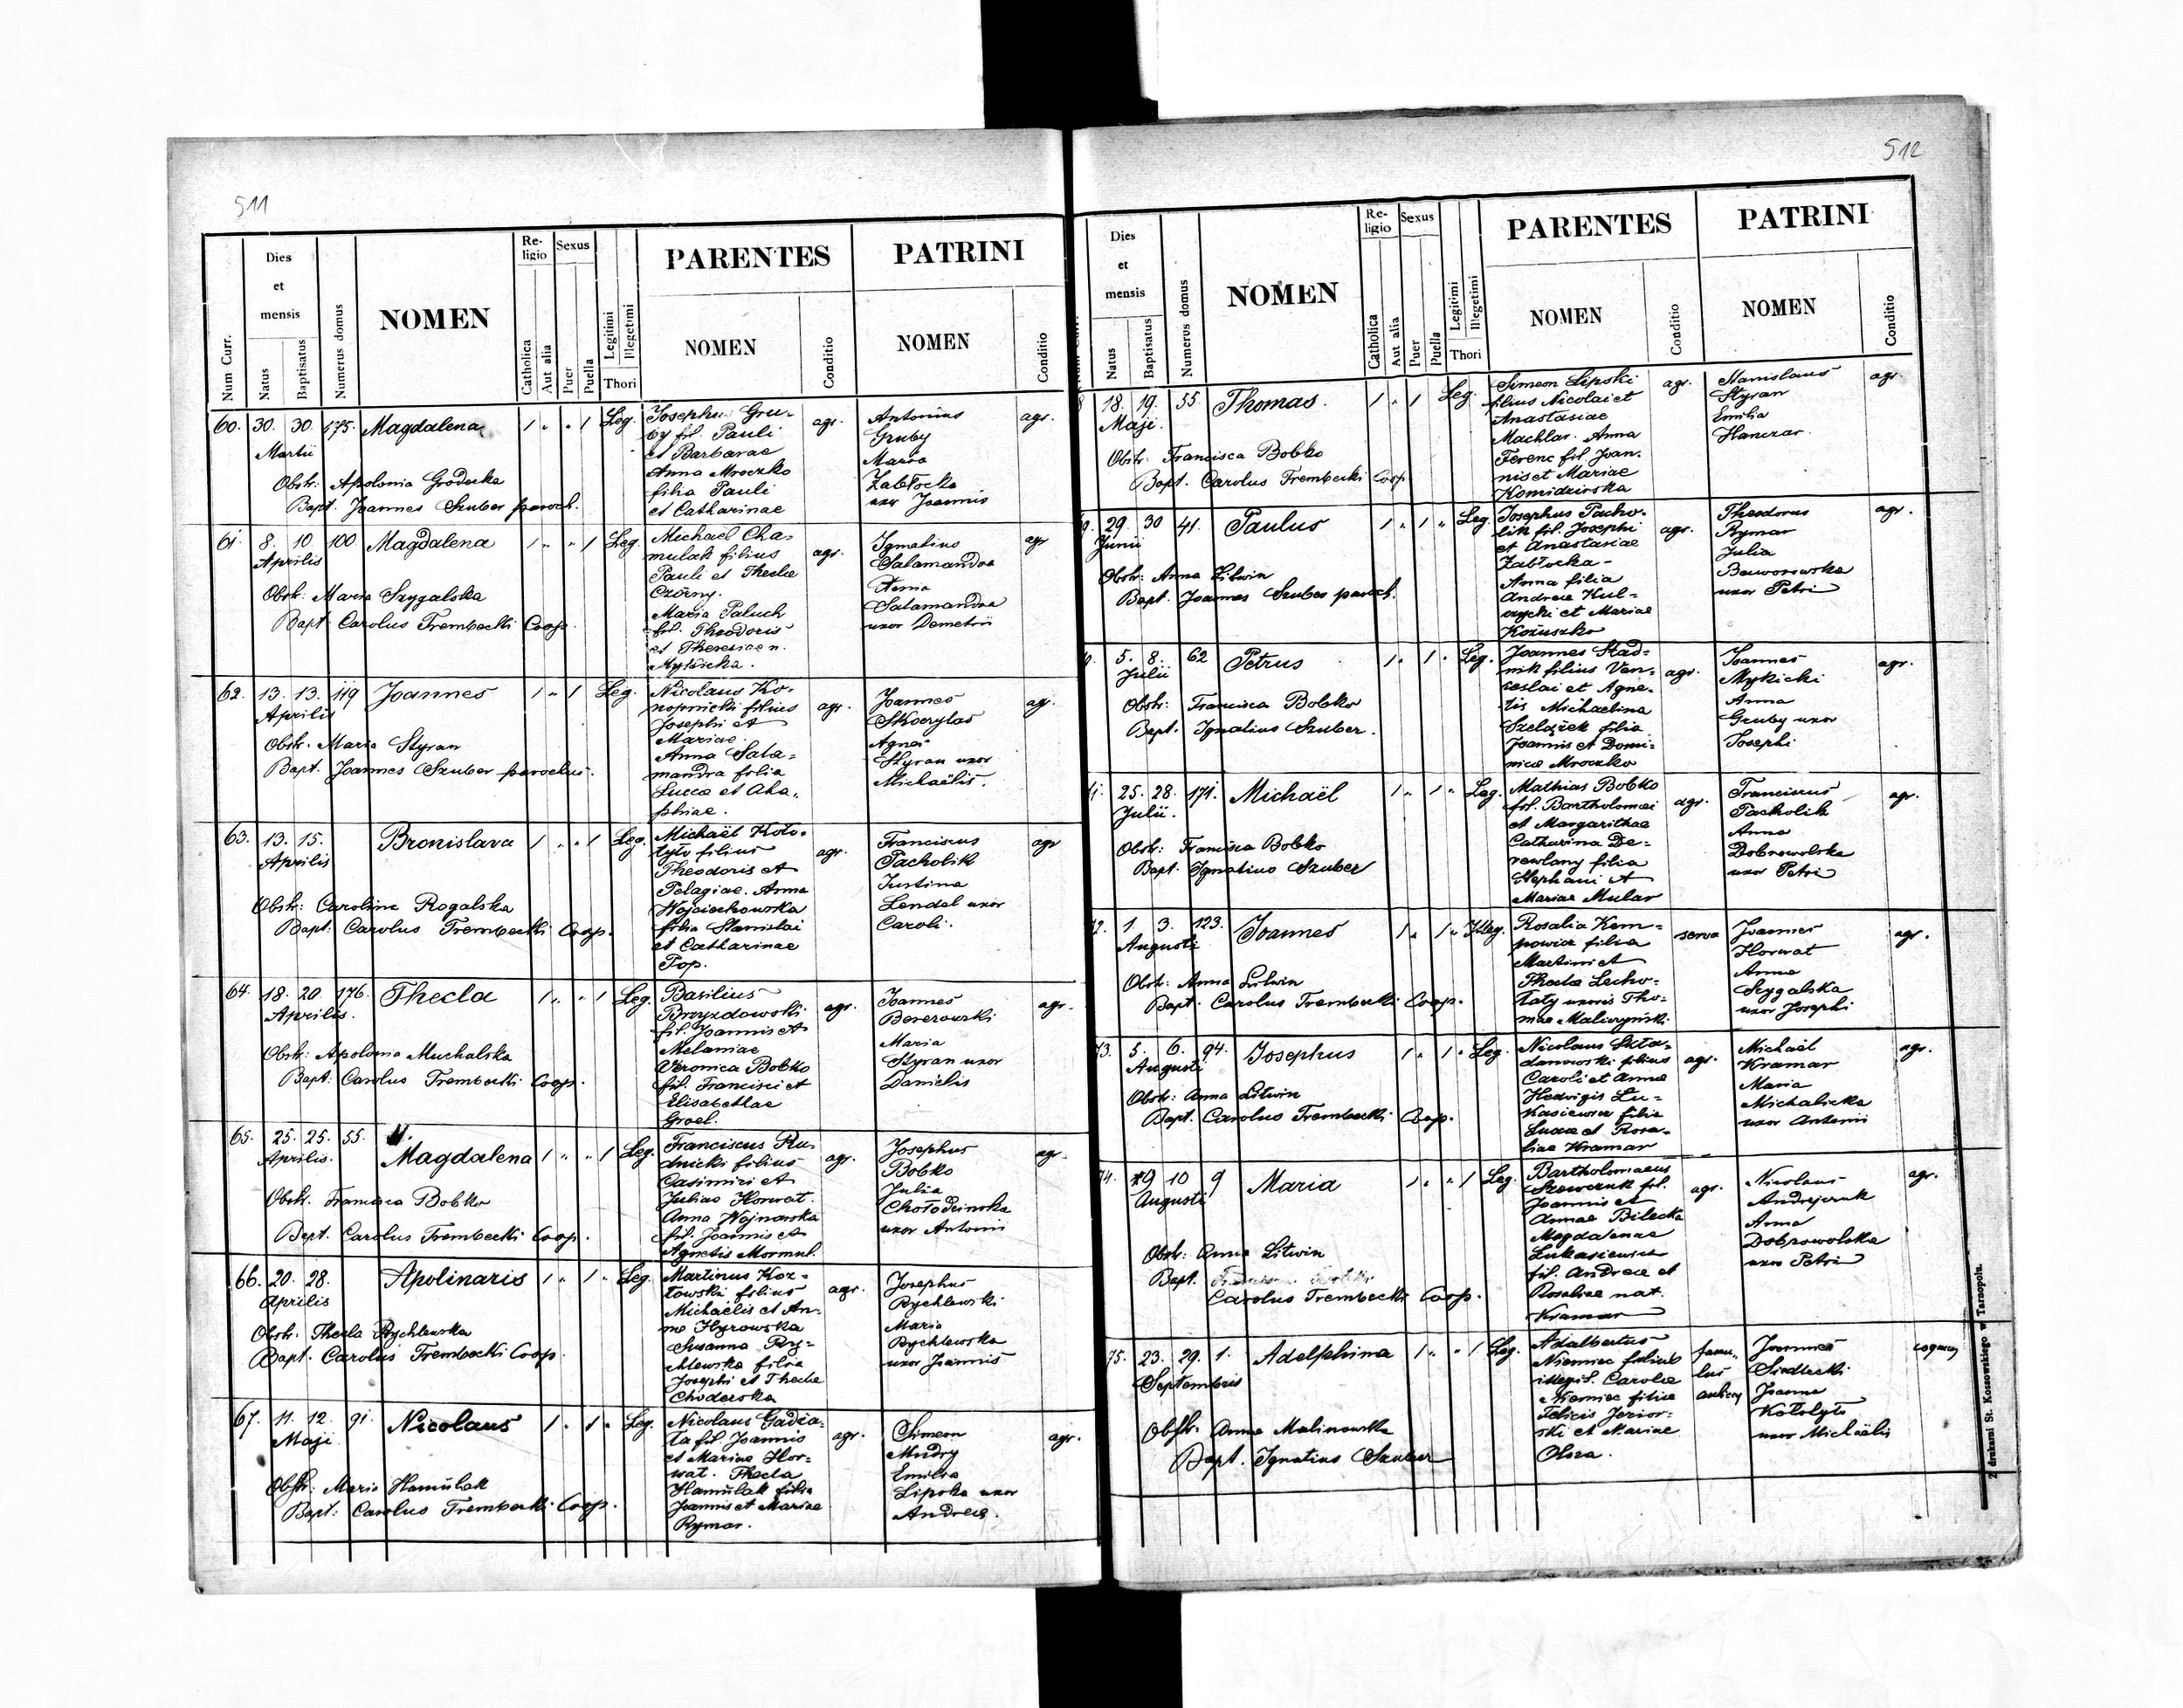 511
Num Curr.
Dies et mensis
Natus
Baptisatus
Numerus domus
NOMEN
Religio
Catholica
Aut alia
Sexus
Puer
Puella
Legitimi
Illegetimi
Thori
PARENTES
NOMEN
Conditio
PATRINI
NOMEN
Conditio
60. 30. 30. 175. Magdalena 1 " " 1 Leg.
Martii
Obstr: Apolonia Grodecka
Bapt. Joannes Szuber paroch.
Josephus Gru-
by fil. Pauli
et Barbarae
Anna Mroczko
filia Pauli
et Catharinae
agr.
Antonius
Gruby
Maria
Zabłocka
uxor Joannis
agr.
61. 8. 10. 100 Magdalena 1 " " 1 Leg.
Aprilis
Obstr: Maria Szygalska
Bapt Carolus Trembecki Coop.
Michael Cha-
mulak filius
Pauli et Theclae
Czorny.
Maria Paluch
fil. Theodoris
et Theresiae n.
agr.
Ignatius
Salamandra
Xenia
Salamandra
uxor Demetrii
agr
62. 13. 13. 119 Joannes 1 " 1 Leg.
Aprilis
Obstr. Maria Styran
Bapt. Joannes Szuber parochus.
Nicolaus Ko-
nopnicki filius
Josephi et
Mariae.
Anna Sala-
mandra filia
Lucca et Aha-
phiae.
agr.
Joannes
Skoczylas
Agnes
Styran uxor
Michaëlis.
agr.
63. 13. 15. Bronislava 1 " " 1 Leg.
Aprilis
Obstr: Carolina Rogalska
Bapt: Carolus Trembecki Coop.
Michaël Koło-
tyło filius
Theodoris et
Pelagiae. Anna
Wojciechowska
filia Stanislai
et Catharinae
Pop.
agr.
Franciscus
Pacholik
Justina
Lendel uxor
Caroli.
agr
64. 18. 20 176. Thecla 1 " " 1 Leg.
Aprilis.
Obstr: Apolonia Muchalska
Bapt: Carolus Trembecki Coop.
Basilius
Brzyzdowski
fil. Joannis et
Melaniae
Veronica Bobko
fil. Francisci et
Elisabethae
Groel.
agr.
Joannes
Berezowski
Maria
Styran uxor
Danielis
agr.
65. 25. 25. 55. Magdalena 1 " " 1 Leg.
Aprilis.
Obstr. Francisca Bobko
Bapt. Carolus Trembecki Coop.
Franciscus Ru-
dnicki filius
Casimiri et
Juliae Horwat.
Anna Wojnarska
fil. Joannis et
Agnetis Mormul.
agr.
Josephus
Bobko
Julia
Chołodeinska
uxor Antonii
agr.
66. 20. 28. Apolinaris 1 " 1 " Leg.
Aprilis
Obstr. Thecla Rychlewska
Bapt. Carolus Trembecki Coop.
Martinus Koz-
łowski filius
Michaëlis et An-
nae Hyrowska
Susanna Ry-
chlewska filia
Josephi et Theclae
Choderska
agr.
Josephus
Rychlewski
Maria
Rychlewska
uxor Joannis
67. 11. 12. 91. Nicolaus 1 " 1 " Leg.
Maji
Obstr: Maria Hamulak
Bapt: Carolus Trembecki Coop.
Nicolaus Gadza-
ła fil. Joannis
et Mariae Hor-
wat. Thecla
Hamulak filia
Joannis et Mariae
Rymar.
agr.
Simeon
Mudry
Emilia
Lipska uxor
Andreae.
agr.
512
Dies et mensis
Natus
Baptisatus
Numerus domus
NOMEN
Religio
Catholica
Aut alia
Sexus
Puer
Puella
Legitimi
Illegetimi
Thori
PARENTES
NOMEN
Conditio
PATRINI
NOMEN
Conditio
18. 19. 55. Thomas. 1 " 1 Leg.
Maji.
Obstr: Francisca Bobko
Bapt. Carolus Trembecki Coop
Simeon Lipski
filius Nicolai et
Anastasiae
Machlar. Anna
Ferenc fil. Joan-
nis et Mariae
Komidzirska
agr.
Stanislaus
Styran
Emilia
Hanczar.
agr.
29. 30 41. Paulus 1 " 1 " Leg.
Junii
Obstr: Anna Litwin
Bapt. Joannes Szuber paroch.
Josephus Pacho-
lik fil. Josephi
et Anastasiae
Zabłocka-
Anna filia
Andreae Kul-
czycki et Mariae
Kożuszko
agr.
Theodorus
Rymar
Julia
Baworowska
uxor Petri
agr.
5. 8. 62 Petrus 1 " 1 " Leg.
Julii
Obstr: Francisca Bobko
Bapt. Ignatius Szuber.
Joannes Stad-
nik filius Ven-
ceslai et Agne-
tis Michaelina
Szelążek filia
Joannis et Domi-
nicae Mroczko
agr.
Joannes
Mykicki
Anna
Gruby uxor
Josephi
agr.
25. 28. 171. Michaël 1 " 1 " Leg.
Julii.
Obstr: Francisca Bobko
Bapt. Ignatius Szuber
Mathias Bobko
fil. Bartholomei
et Margarithae
Catharina De-
rewlany filia
Stephani et
Mariae Mular
agr.
Franciscus
Pacholik
Anna
Dobrowolska
uxor Petri
agr.
1. 3. 123. Joannes 1 " 1 " Illeg.
Augusti
Obstr: Anna Litwin
Bapt. Carolus Trembecki Coop.
Rosalia Kem-
powicz filia
Martini et
Thecla Lecho-
łaty uxoris Tho-
mae Maliczyński
serva
Joannes
Horwat
Anna
Szygalska
uxor Josephi
agr.
73. 5. 6. 94. Josephus 1 " 1 " Leg.
Augusti
Obstr: Anna Litwin
Bapt. Carolus Trembecki Coop.
Nicolaus Skła-
danowski filius
Caroli et Anna
Hedvigis Lu-
kasiewicz filia
Lucca et Rosa-
liae Kramar
agr.
Michaël
Kramar
Maria
Michalicka
uxor Antonii
agr.
74. 9 10 9 Maria 1 " " 1 Leg.
Augusti
Obstr: Anna Litwin
Bapt.
Carolus Trembecki Coop.
Bartholomaeus
Szewczuk fil.
Joannis et
Annae Bilecka
Magdalenae
Lukasiewicz
fil. Andreae et
Rosaliae nat.
Kramar
agr.
Nicolaus
Andrejczuk
Anna
Dobrowolska
uxor Petri
agr.
75. 23. 29. 1. Adelphina 1 " " 1 Leg.
Septembris
Obstr. Anna Malinowska
Bapt. Ignatius Szuber
Adalbertus
Niemiec filius
illegit. Carolae
Niemiec filiae
Felicis Jezior-
ski et Mariae
Olsza.
famu-
lus
Joannes
Siedlecki
Joanna
Kołotyło
uxor Michaëlis
Z drukarni St. Kossowskiego w Tarnopolu.